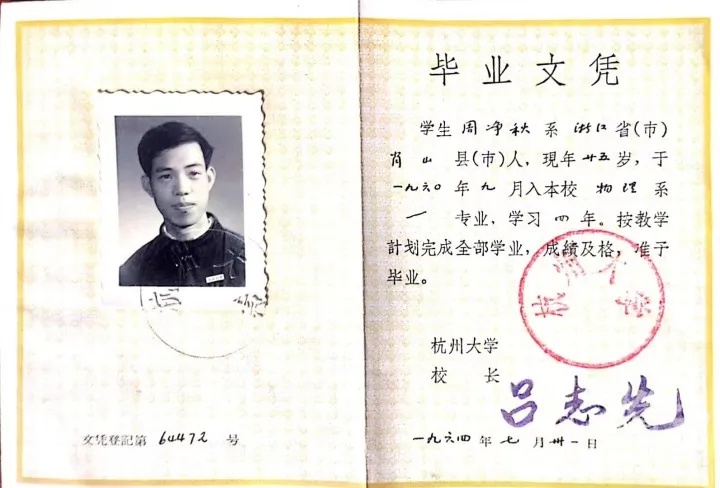 毕业文凭
学生周净秋系浙江省(市)
肖山县(市)人，现年廿五岁，于
一九六〇年九月入本校物理系
一专业，学习四年。按教学
計划完成全部学业，成績及格，准予
毕业。
杭州大学
杭州大学
校长
吕志先
文凭登記第 64472 号
一九六四年七月卅一日